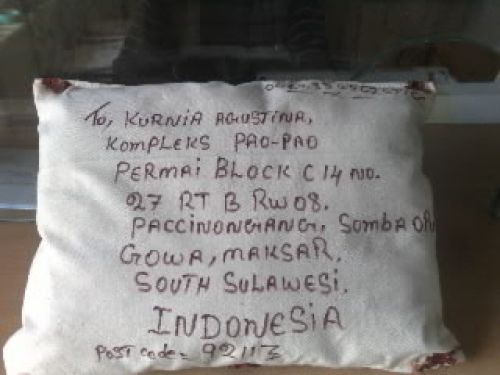 To, KURNIA AGUSTINA,
KOMPLEKS PAO-PAO
PERMAI BLOCK C 14 NO.
27 RT B RW 08.
PACCINONGANG, SOMBA OPU
GOWA, MAKSAR.
SOUTH SULAWESI.
INDONESIA
POST code =